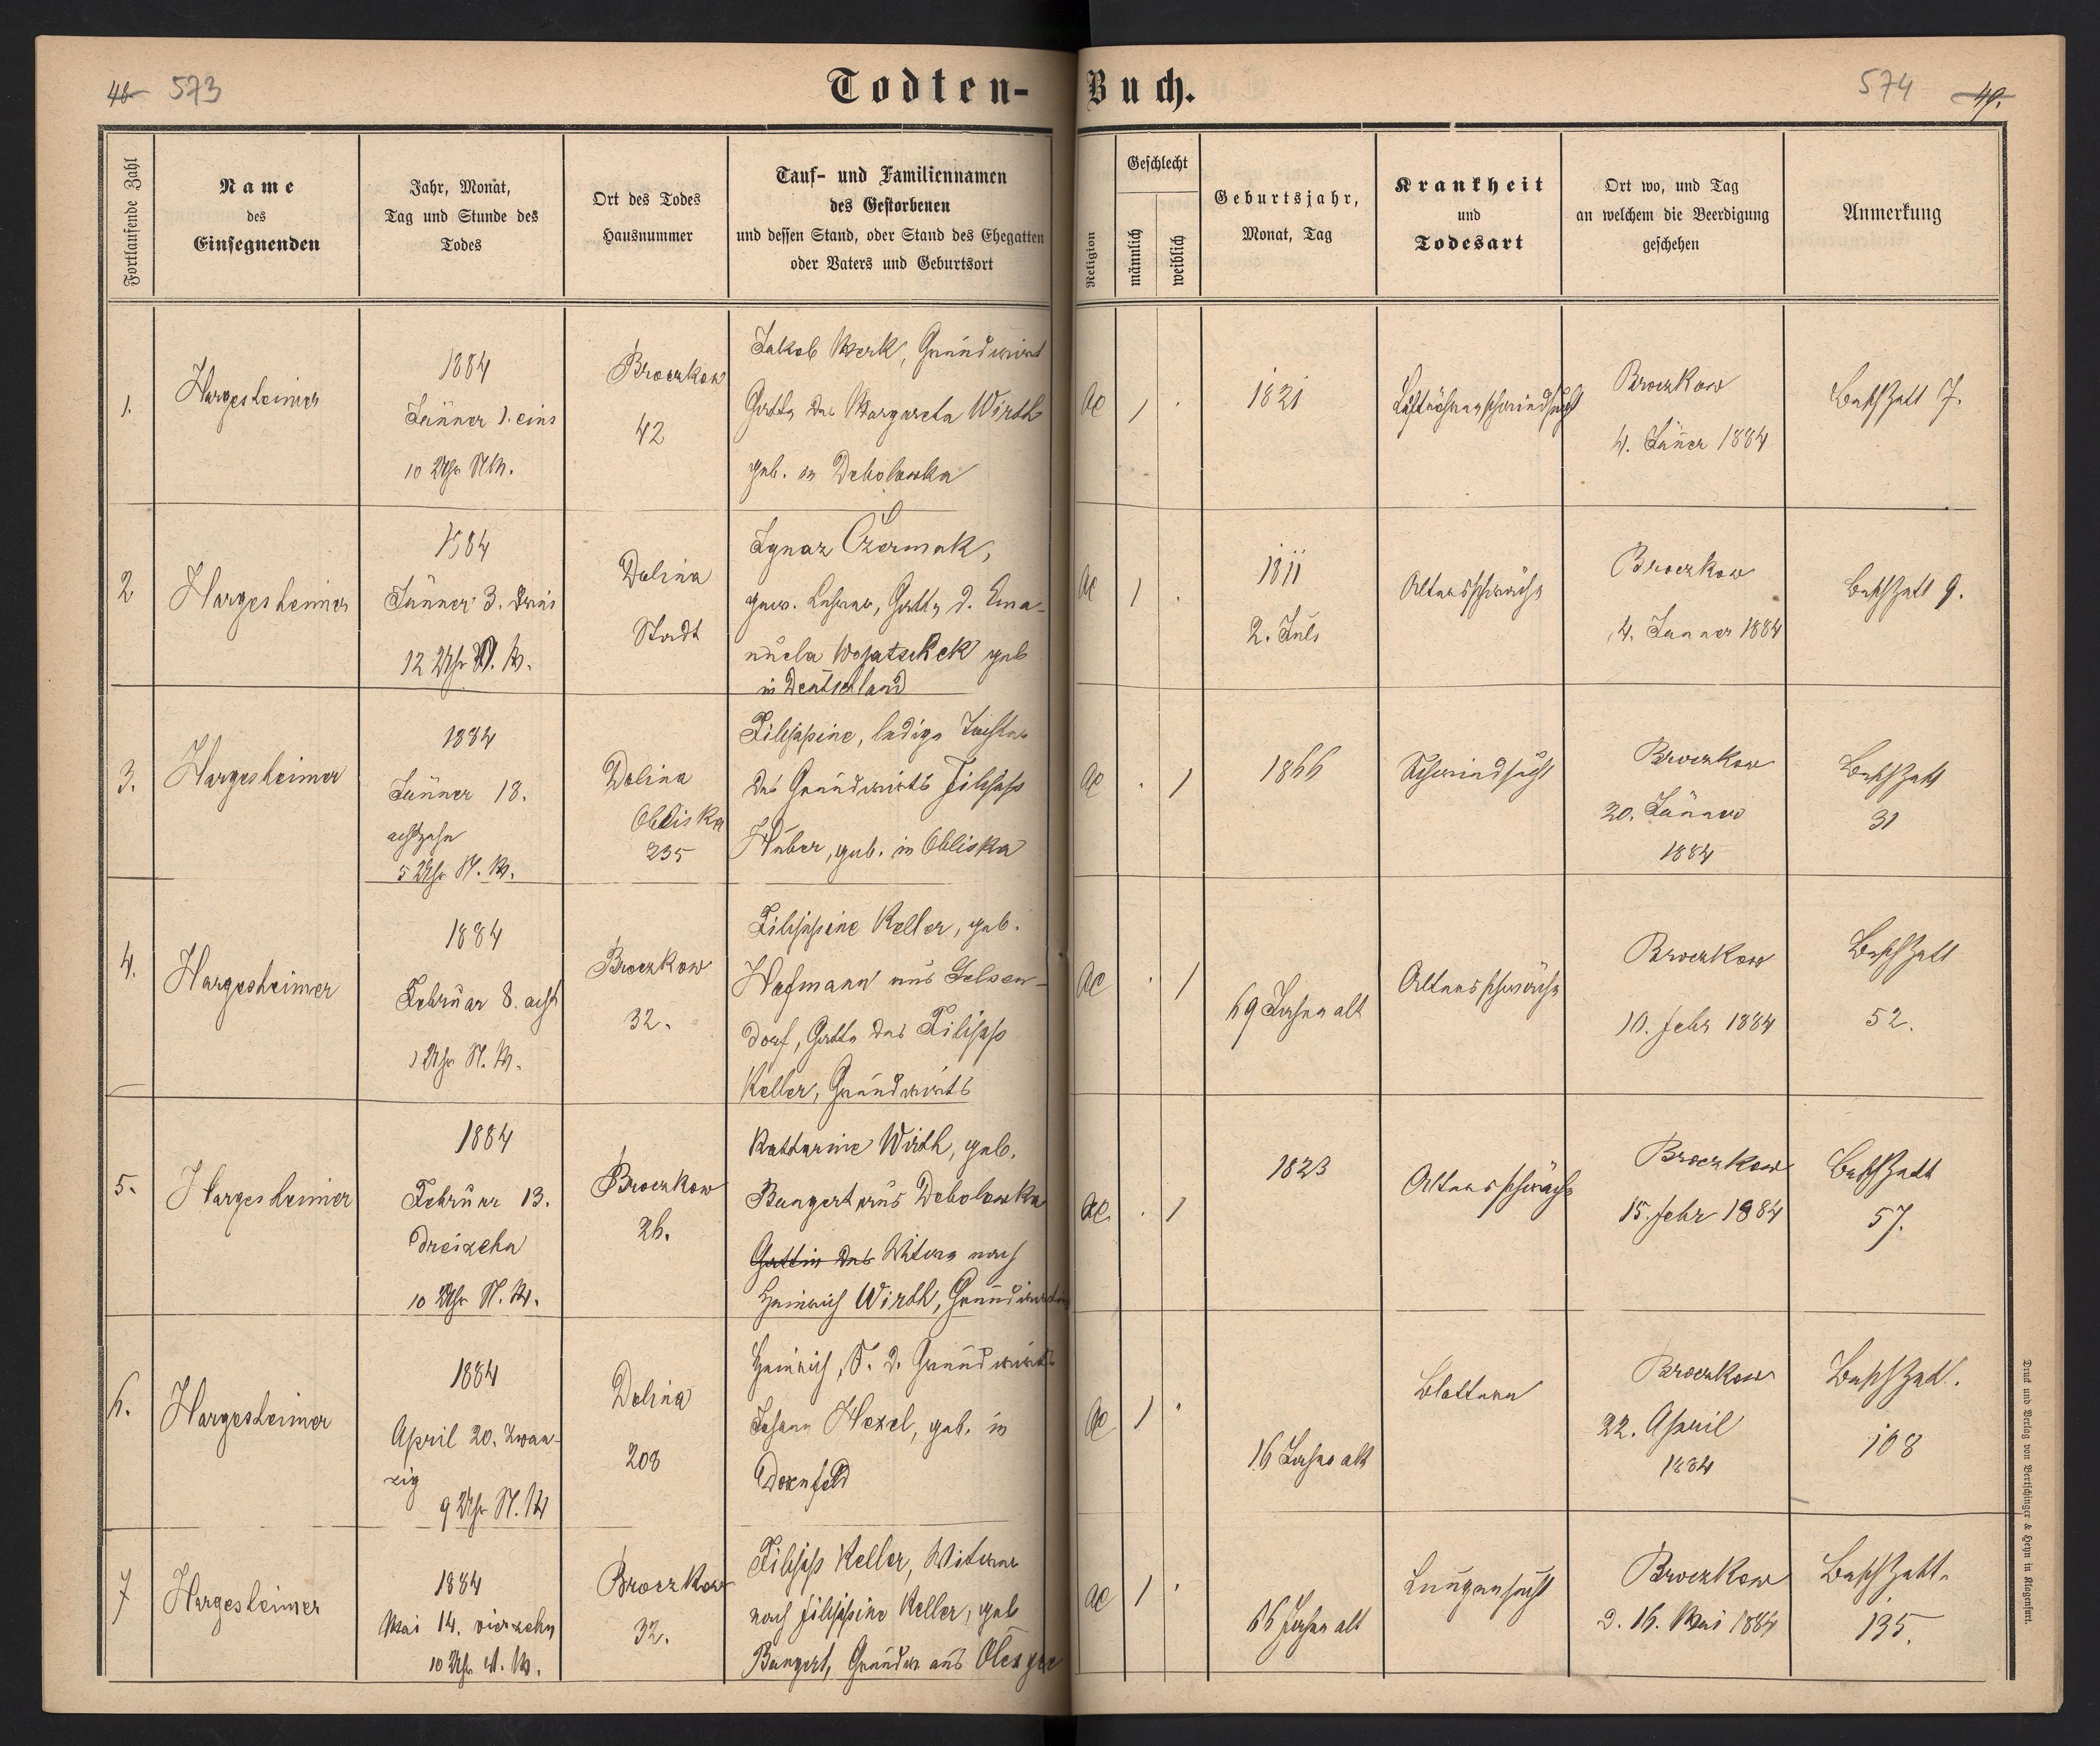 48 573
Todten-Buch.
574 49.
Fortlaufende Zahl
Name
des
Einsegnenden
Jahr, Monat,
Tag und Stunde des
Todes
Ort des Todes
Hausnummer
Tauf- und Familiennamen
des Gestorbenen
und dessen Stand, oder Stand des Ehegatten
oder Vaters und Geburtsort
Religion
Geschlecht
männlich
weiblich
Geburtsjahr,
Monat, Tag
Krankheit
und
Todesart
Ort wo, und Tag
an welchem die Beerdigung
geschehen
Anmerkung
1.
Hargesheimer
1884
Jänner 1. eins
10 Uhr NM.
Broczkow
42
Jakob Merk, Grundwirt
Gatte der Margareta Wirth
geb. in Debolowka
ac
1
.
1821
Luftröhrenschwindsucht
Broczkow
4. Jäner 1884
BeschZettl 7.
2
Hargesheimer
1884
Jänner 3. drei
12 Uhr V. M.
Dolina
Stadt
Ignaz Czermak,
gew. Lehrer, Gatte d. Ema-
nuela Wojatschek geb
in Deutschland
ac
1
.
1811
2. Juli
Altersschwäche
Broczkow
4. Janner 1884
BeschZettl 9.
3.
Hargesheimer
1884
Jänner 18.
achtzehn
5 Uhr N. M.
Dolina
Obliska
235
Filippine, ledige Tochter
des Grundwirts Filipp
Huber, geb. in Obliska
ac
.
1
1866
Schwindsucht
Broczkow
20. Jänner
1884
BeschZettl
31
4.
Hargesheimer
1884
Februar 8. acht
1 Uhr N. M.
Broczkow
32.
Filippine Keller, geb.
Hofmann aus Gelsen-
dorf, Gatte des Filipp
Keller, Grundwirts
ac
.
1
69 Jahre alt
Altersschwäche
Broczkow
10. Febr 1884
BeschZettl
52.
5.
Hargesheimer
1884
Februar 13.
dreizehn
10 Uhr N. M.
Broczkow
26.
Katharine Wirth, geb.
Bangert aus Debolowka
Gattin des Witwe nach
Heinrich Wirth, Grundwirtin
ac.
.
1
1823
Altersschwäche
Broczkow
15. Febr 1884
BeschZettl
57.
6.
Hargesheimer
1884
April 20. zwan-
zig
9 Uhr N. M
Dolina
208
Heinrich, S. d. Grundwirts
Johann Hexel, geb. in
Dornfeld
ac
1
.
16 Jahre alt
Blattern
Broczkow
22. April
1884
BeschZettl.
108
7
Hargesheimer
1884
Mai 14. vierzehn
10 Uhr N. M.
Broczkow
32.
Filipp Keller, Witwer
nach Filippine Keller, geb
Bangert, Gründer aus
ac
1
.
66 Jahre alt
Lungensucht
Broczkow
d. 16. Mai 1884
BeschZettl.
135.
Druck und Verlag von Bertschinger & Heyn in Klagenfurt.